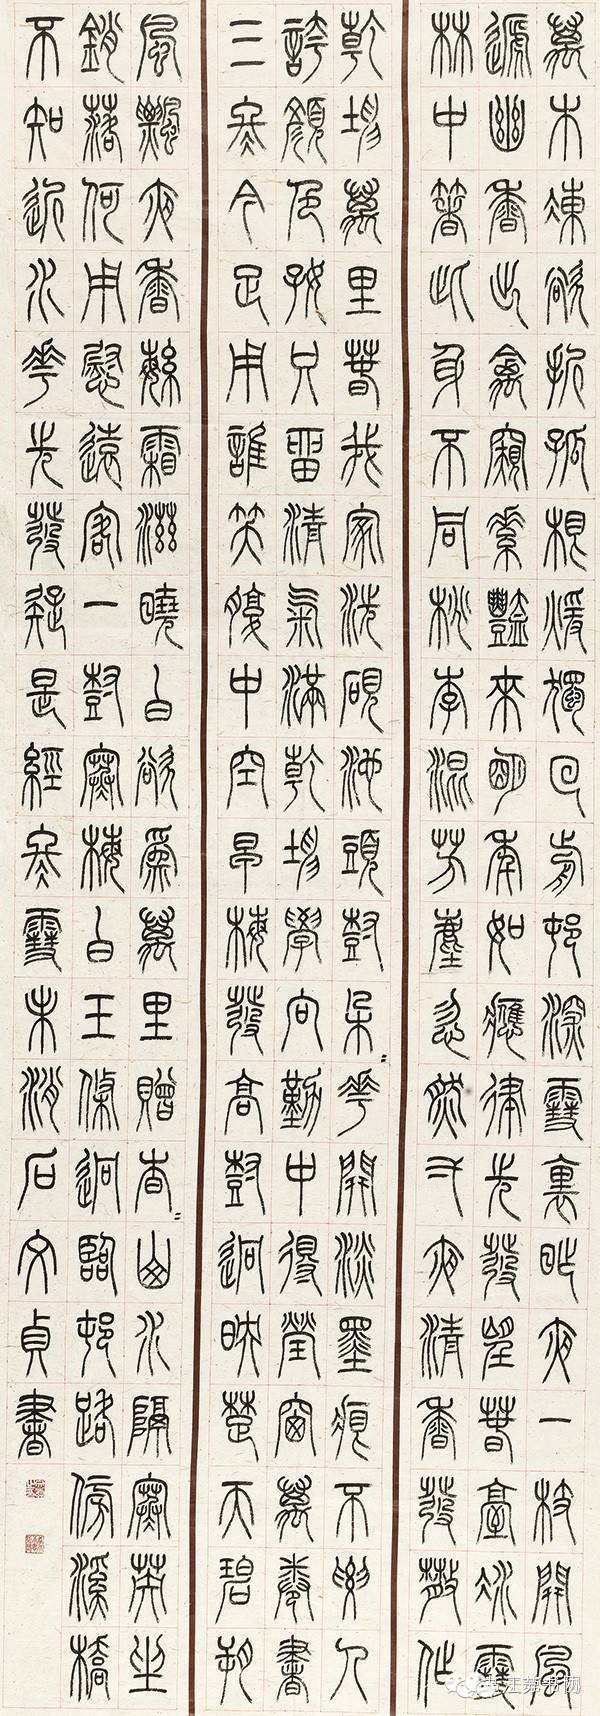 萬木凍欲折孤根暖獨回前村深雪裏昨夜一枝開風
遞幽香出禽窺素艷來明年如應律先發望春臺冰雪
林中著此身不同桃李混芳塵忽然又夜清香發散作
乾坤萬里春我家洗硯池頭樹朵〻花開淡墨痕不要人
誇顏色好只留清氣滿乾坤學向勤中得螢窗萬卷書
三冬今足用誰笑腹中空早梅發高樹迥映楚天碧朔
風飄夜香繁霜滋曉白欲為萬里贈杳〻山水隔寒英坐
銷落何用慰遠客一樹寒梅白玉條迥臨村路傍溪橋
不知近水花先發疑是經冬雪未消石文貞書